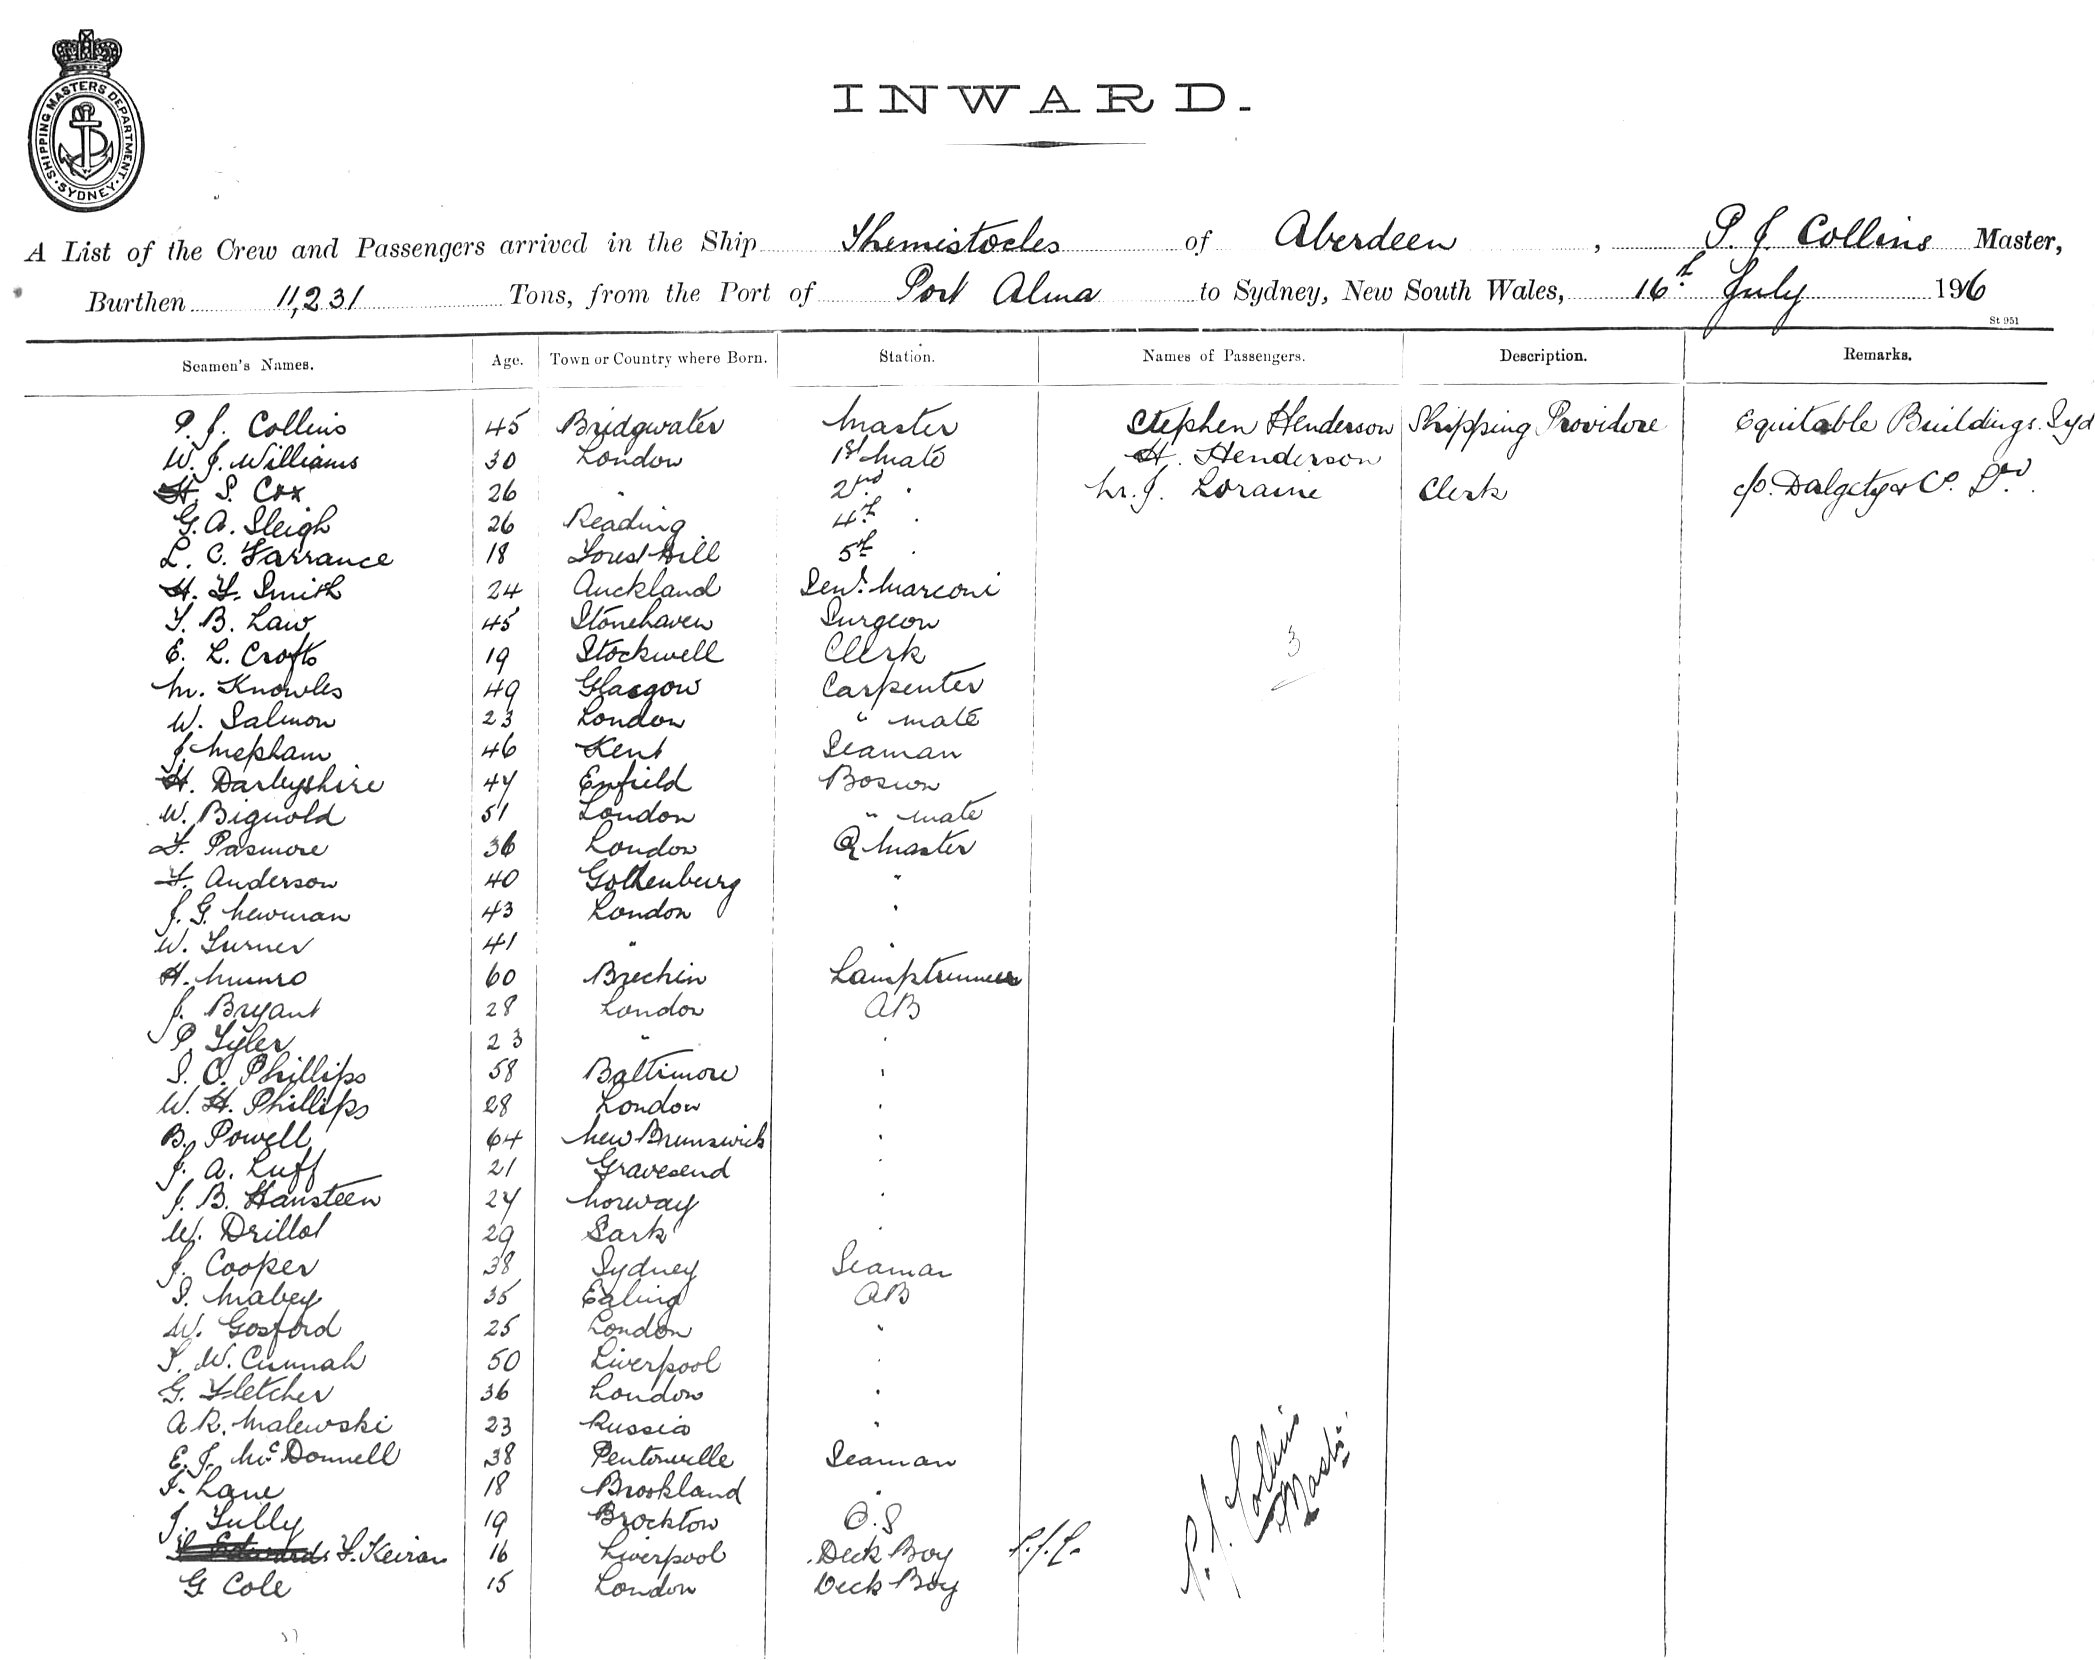 SHIPPING MASTERS DEPARTMENT · SYDNEY ·
INWARD.
A List of the Crew and Passengers arrived in the Ship Themistocles of Aberdeen , P. J. Collins Master,
Burthen 11,231 Tons, from the Port of Port Alma to Sydney, New South Wales, 16th July 1916
St 951
Seamen's Names. Age. Town or Country where Born. Station. Names of Passengers. Description. Remarks.
P. J. Collins 45 Bridgwater Master Stephen Henderson Shipping Providore Equitable Buildings. Syd
W. J. Williams 30 London 1st Mate H. Henderson
H. S. Cox 26 " 2nd " M. J. Loraine Clerk c/o. Dalgety & Co. Ltd.
G. A. Sleigh 26 Reading 4th "
L. C. Farrance 18 Forest Hill 5th "
H. F. Smith 24 Auckland Senr. Marconi
T. B. Law 45 Stonehaven Surgeon
E. L. Crofts 19 Stockwell Clerk 3
M. Knowles 49 Glasgow Carpenter
W. Salmon 23 London " mate
J. Mepham 46 Kent Seaman
H. Darbyshire 47 Enfield Bosun
W. Bignold 51 London " mate
F. Pasmore 36 London Q Master
F. Anderson 40 Gothenburg "
J. G. Newman 43 London "
W. Turner 41 " "
H. Munro 60 Brechin Lamptrimmer
J. Bryant 28 London AB
P. Tyler 23 " "
S. O. Phillips 58 Baltimore "
W. H. Phillips 28 London "
B. Powell 64 New Brunswick "
J. A. Luff 21 Gravesend "
J. B. Hansteen 27 Norway "
W. Drillot 29 Sark "
J. Cooper 38 Sydney Seaman
S. Mabey 35 Ealing AB
W. Gosford 25 London "
S. W. Cunnah 50 Liverpool "
G. Fletcher 36 London "
A R. Malewski 23 Russia "
E. J. McDonnell 38 Pentonville Seaman
F. Lane 18 Brookland "
J. Tully 19 Brockton O. S
F. Keiran 16 Liverpool Deck Boy P.J.C.
G Cole 15 London Deck Boy
P. J. Collins
Master
37